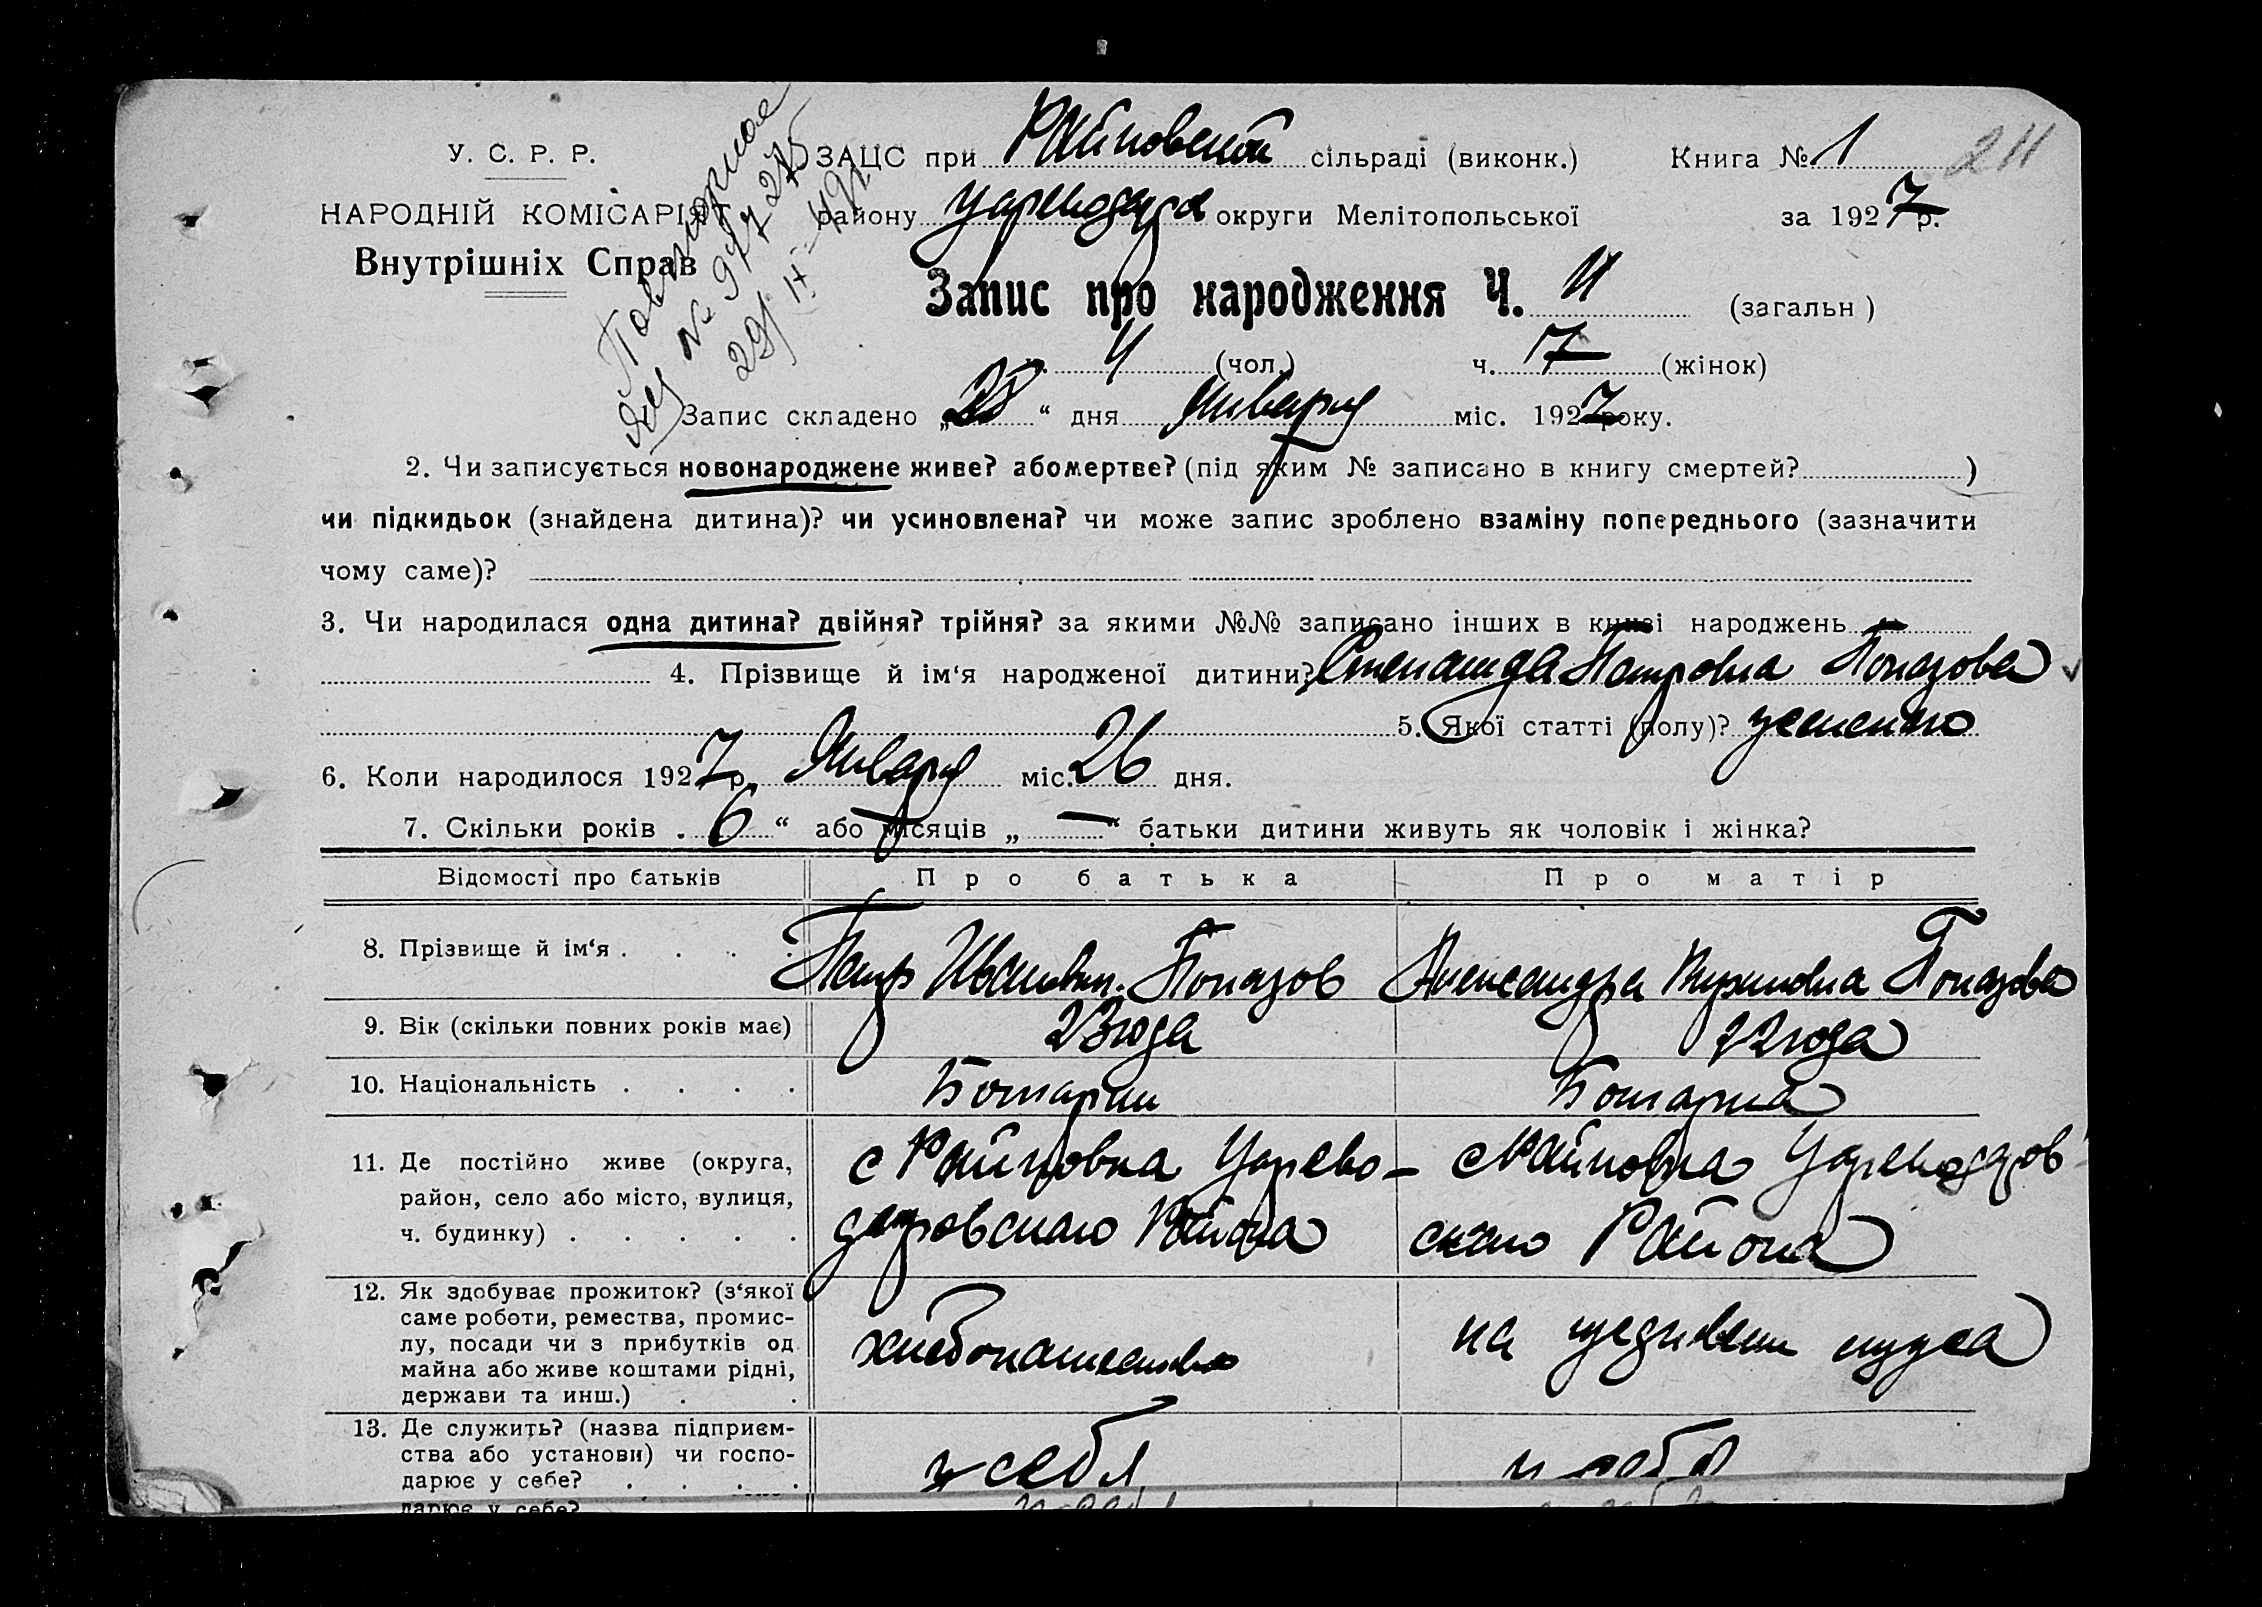 У. С. Р. Р.
НАРОДНІЙ КОМІСАРІЯТ
Внутрішніх Справ
Повторное
№ 977275
ЗАЦС при Райновской сільраді (виконк.) Книга № 1 211
району Цареводар округи Мелітопольської за 1927 р.
Запис про народження Ч. 11 (загальн)
4 (чол.) ч. 7 (жінок)
Запис складено „28“ дня Января міс. 1927 року.
2. Чи записується новонароджене живе? або мертве? (під яким № записано в книгу смертей? )
чи підкидьок (знайдена дитина)? чи усиновлена? чи може запис зроблено взаміну попереднього (зазначити
чому саме)?
3. Чи народилася одна дитина? двійня? трійня? за якими №№ записано інших в книзі народжень
4. Прізвище й ім‘я народженої дитини? Степанида Петровна Попазова
5. Якої статті (полу)? женского
6. Коли народилося 1927 р. Января міс. 26 дня.
7. Скільки років „ 6 “ або місяців „ — “ батьки дитини живуть як чоловік і жінка?
Відомості про батьків Про батька Про матір
8. Прізвище й ім‘я . . . . Петр Иванов. Попазов Александра Попазова
9. Вік (скільки повних років має) 23 года 22 года
10. Національність . . . . Болгарин Болгарка
11. Де постійно живе (округа, с Райновка Царево- с Райновка Цареводаров
район, село або місто, вулиця,
ч. будинку) . . . . . даровского Района ского Района
12. Як здобуває прожиток? (з‘якої
саме роботи, ремества, промис-
лу, посади чи з прибутків од хлебопашество на иждивении мужа
майна або живе коштами рідні,
держави та инш.) . .
13. Де служить? (назва підприєм-
ства або установи) чи госпо- у себя у себя
дарює у себе? . . . .
дарює у себе?